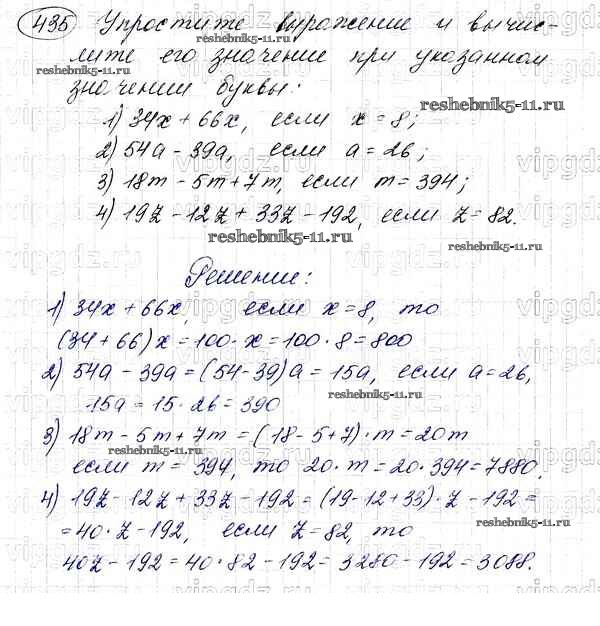 435 Упростите выражение и вычис-
лите его значение при указанном
значении буквы:
1) 34x + 66x, если x = 8;
2) 54a - 39a, если a = 26;
3) 18m - 5m + 7m, если m = 394;
4) 19z - 12z + 33z - 192, если z = 82.
Решение:
1) 34x + 66x, если x = 8, то
(34 + 66)x = 100·x = 100·8 = 800
2) 54a - 39a = (54-39)a = 15a, если a = 26,
15a = 15·26 = 390
3) 18m - 5m + 7m = (18-5+7)·m = 20m
если m = 394, то 20·m = 20·394 = 7880.
4) 19z - 12z + 33z - 192 = (19-12+33)·z - 192 =
= 40·z - 192, если z = 82, то
40z - 192 = 40·82 - 192 = 3280 - 192 = 3088.
reshebnik5-11.ru
vipgdz.ru